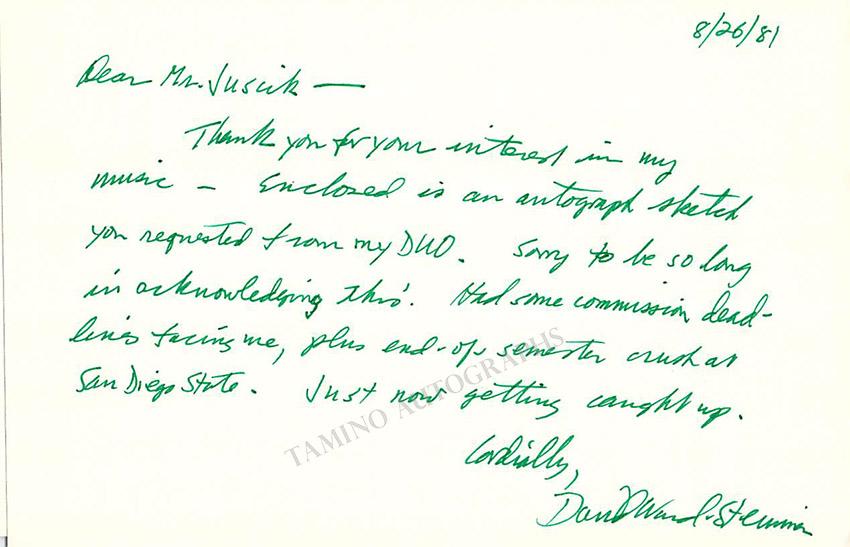 8/26/81
Dear Mr. Juscik —
Thank you for your interest in my
music — Enclosed is an autograph sketch
you requested from my DUO. Sorry to be so long
in acknowledging this. Had some commission dead-
lines facing me, plus end-of-semester crush at
San Diego State. Just now getting caught up.
TAMINO AUTOGRAPHS
Cordially,
David Ward-Steinman